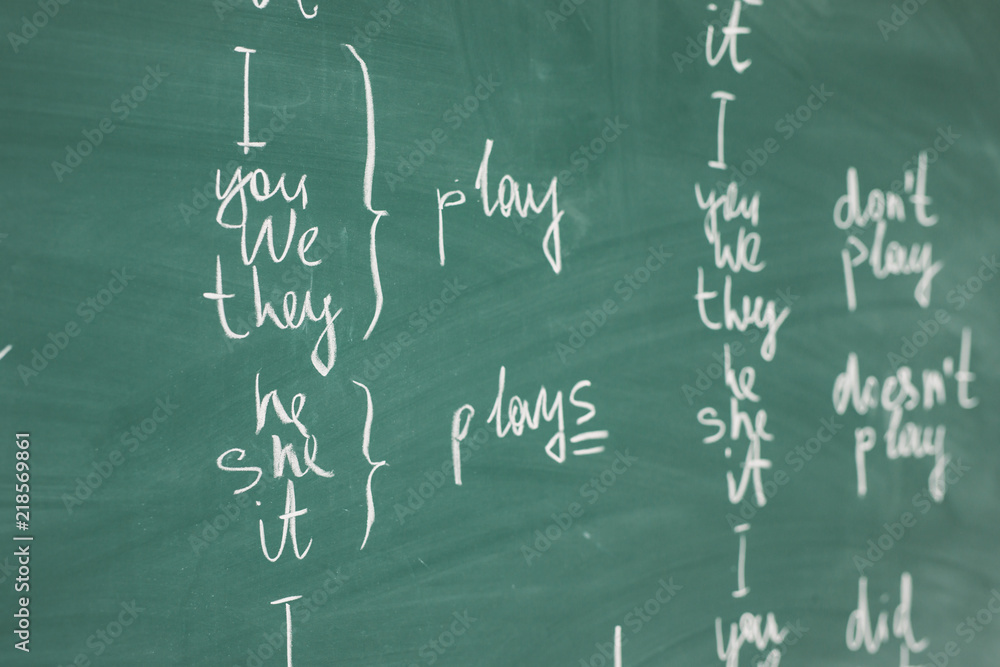 I
you
We
they
play
he
she
it
plays
I
it
I
you
We
they
don't
play
he
she
it
doesn't
play
I
you
did
Adobe Stock | #218569861